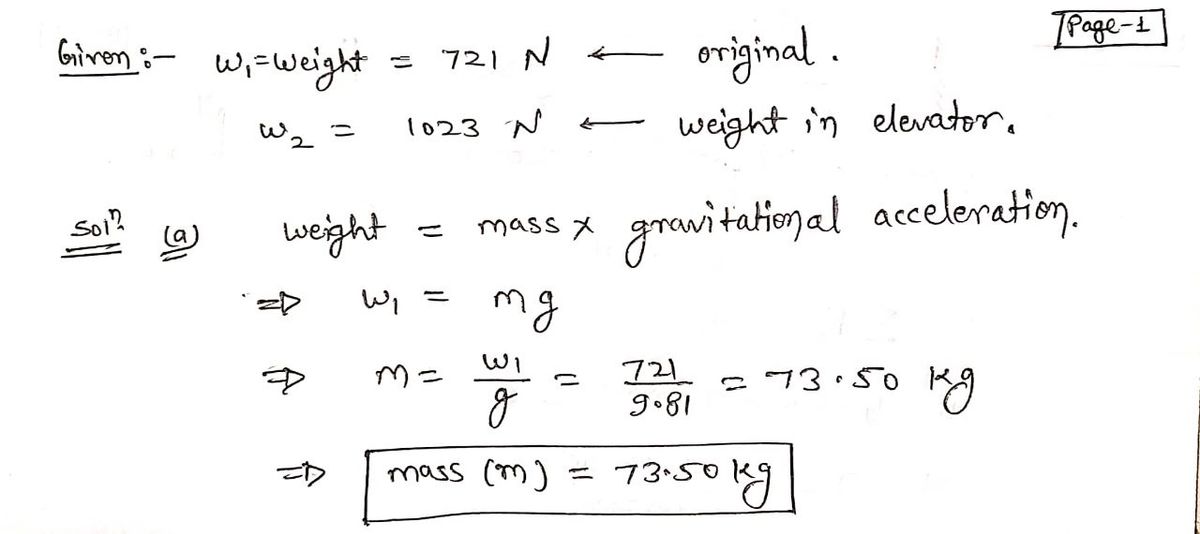 Page-1
Given :- W₁ = Weight = 721 N ← original.
W₂ = 1023 N ← weight in elevator.
Solⁿ (a) weight = mass x gravitational acceleration.
⇒ W₁ = mg
⇒ m = W1/g = 721/9.81 = 73.50 kg
⇒ mass (m) = 73.50 kg